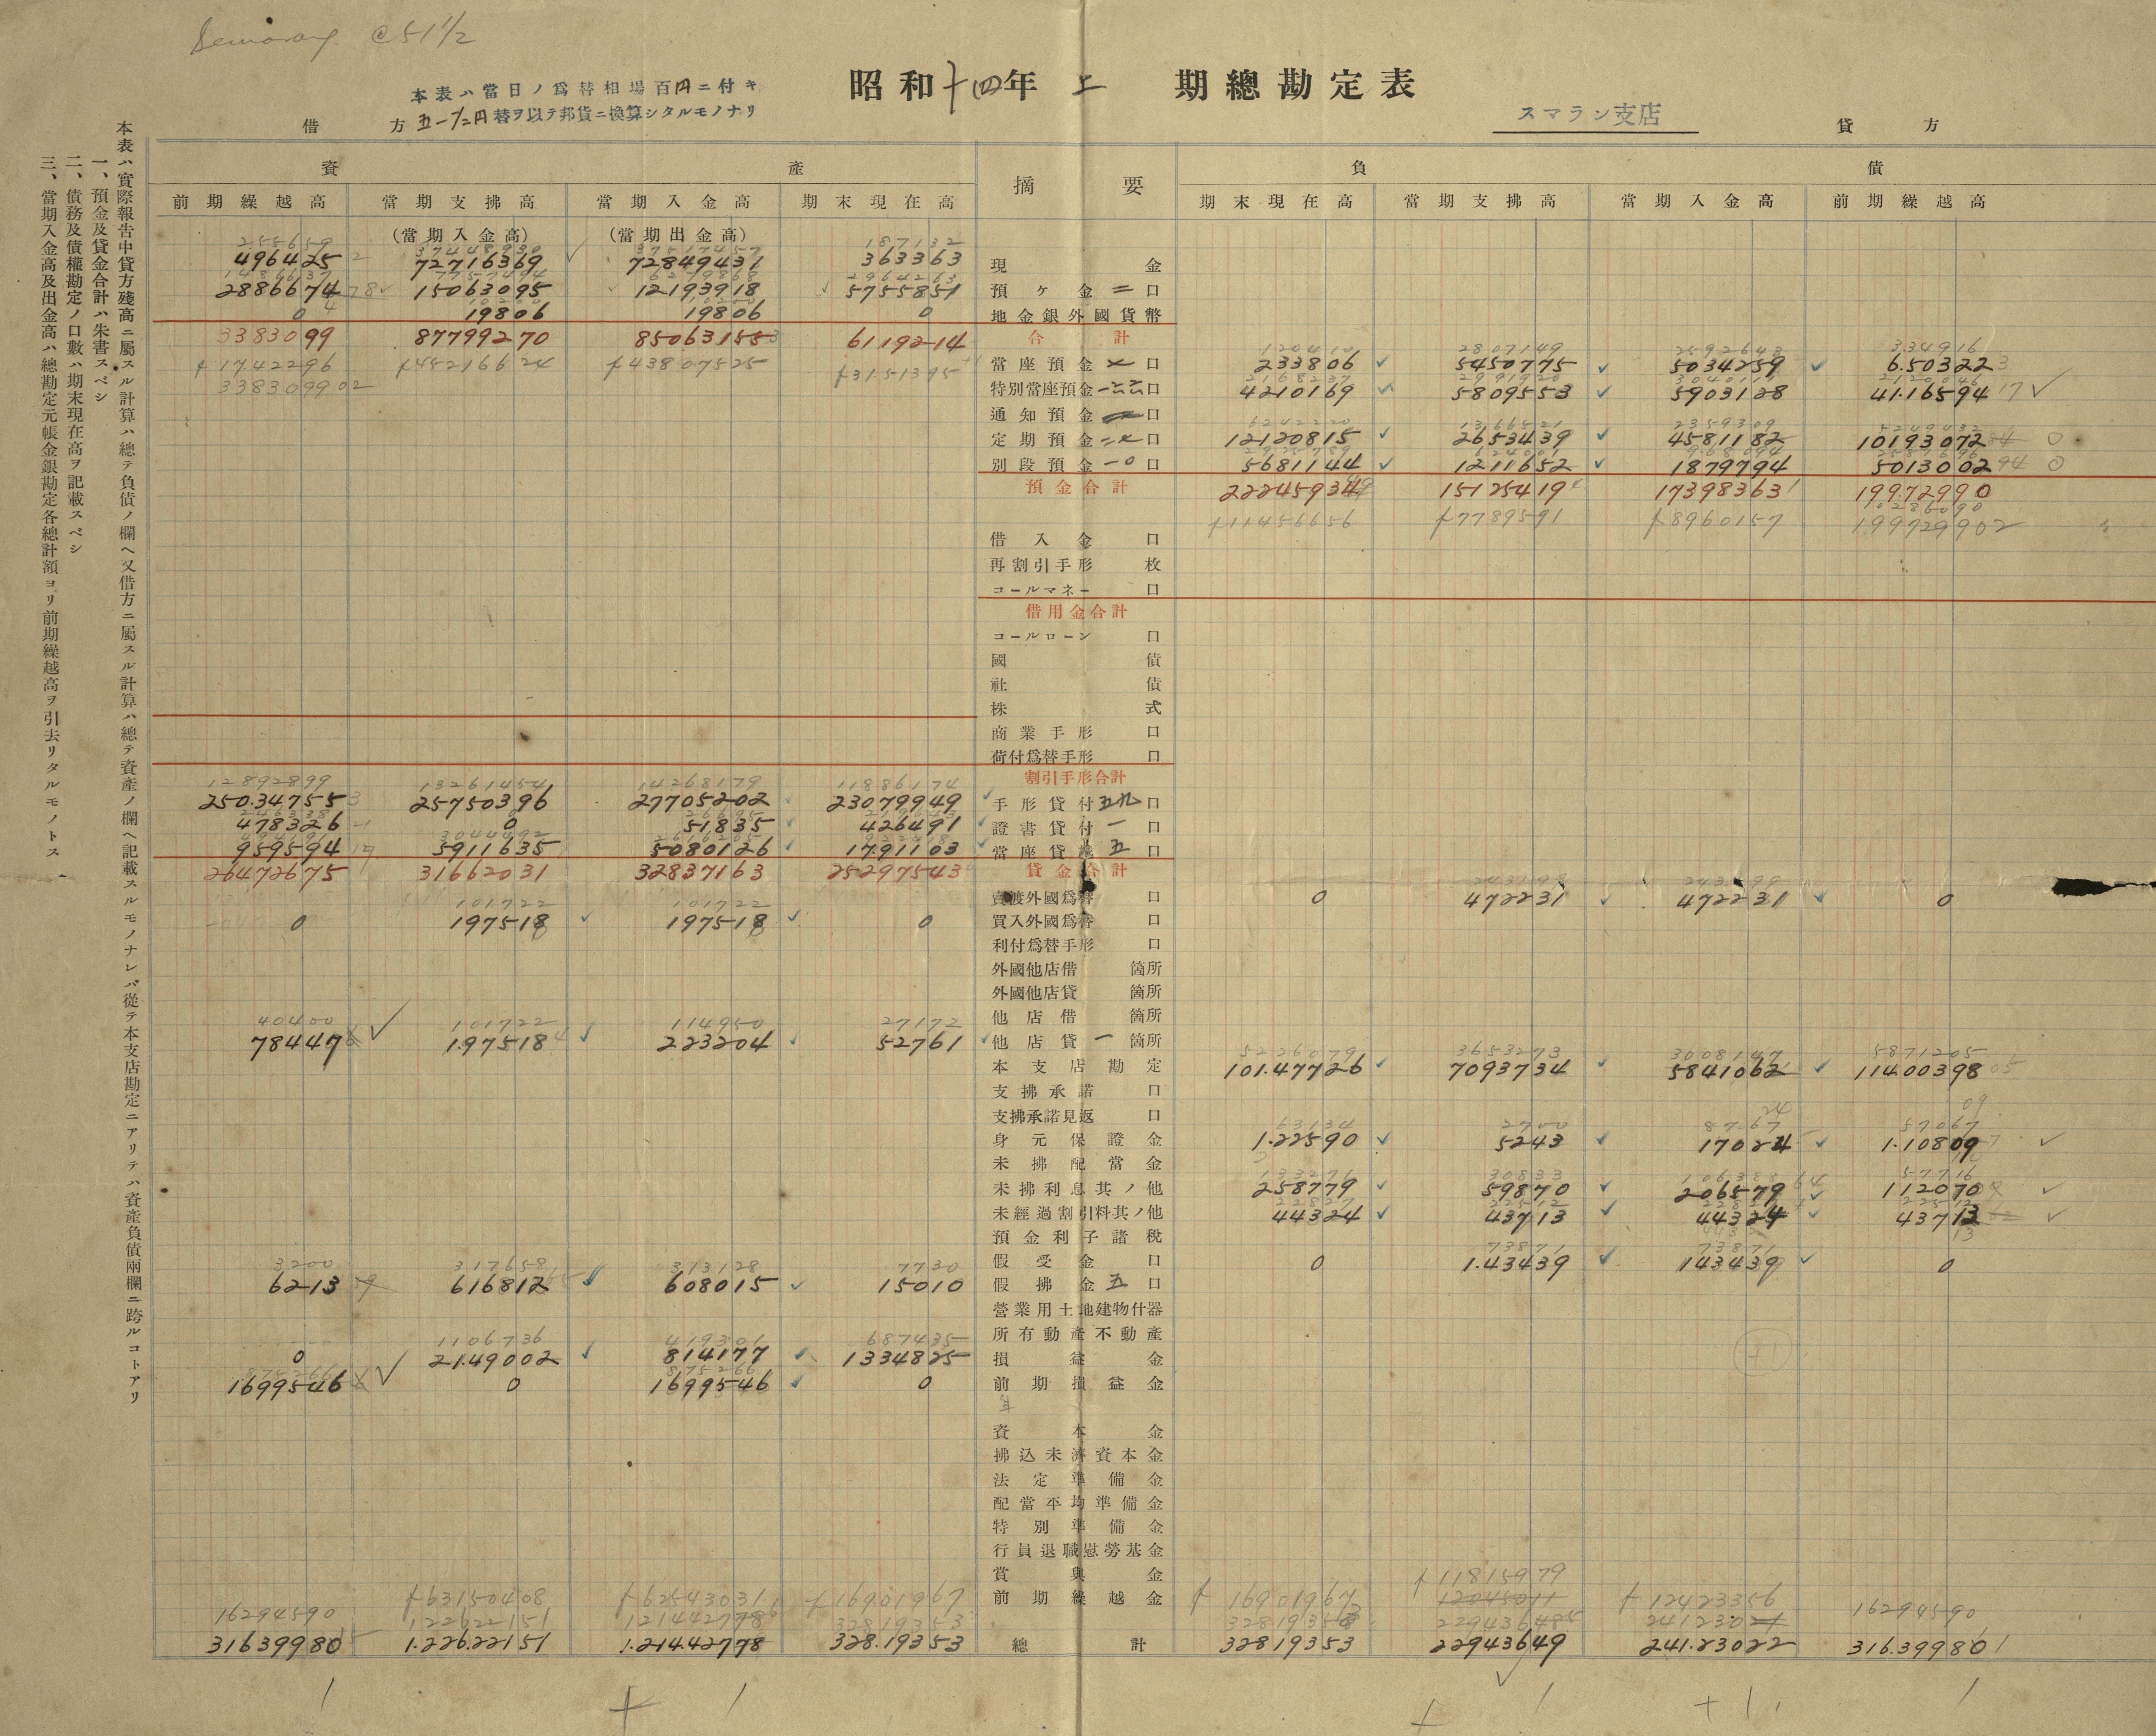 Semarang @51 1/2
昭和十四年上期總勘定表
本表ハ當日ノ爲替相場百円ニ付キ
五一1/2円替ヲ以テ邦貨ニ換算シタルモノナリ
スマラン支店
借方
貸方
本表ハ實際報告中貸方殘高ニ屬スル計算ハ總テ負債ノ欄ヘ又借方ニ屬スル計算ハ總テ資産ノ欄ヘ記載スルモノナレバ從テ本支店勘定ニアリテハ資産負債兩欄ニ跨ルコトアリ
一、預金及貸金合計ハ朱書スベシ
二、債務及債權勘定ノ口數ハ期末現在高ヲ記載スベシ
三、當期入金高及出金高ハ總勘定元帳金銀勘定各總計額ヨリ前期繰越高ヲ引去リタルモノトス
資産 摘要 負債
前期繰越高 當期支拂高 當期入金高 期末現在高 期末現在高 當期支拂高 當期入金高 前期繰越高
(當期入金高) (當期出金高)
255659 37448930 37517457 187132
496425 72716369 72849431 363363 現金
1486637 7757494 6279868 2964263
2886674 15063095 12193918 5755851 預ケ金二口
0 19806 19806 0 地金銀外國貨幣
3383099 87799270 85063155 6119214 合計
120410 2807149 2592643 334916
f1742296 f45216624 f43807525 f3151395 當座預金 口 233806 5450775 5034259 6.50322
338309902 特別當座預金 口 4210169 5809553 5903128 41.16594
通知預金 口
定期預金 口 12120815 2653439 4581182 10193072
別段預金一〇口 5681144 1211652 1879794 5013002
預金合計 22245934 15125419 17398363 19972990
f11456656 f7789591 f8960157 10286090
199729902
借入金 口
再割引手形 枚
コールマネー 口
借用金合計
コールローン 口
國債
社債
株式
商業手形 口
荷付爲替手形 口
割引手形合計
12892899 13261454 14268179 11886174
250.34755 25750396 27705202 23079949 手形貸付五九口
478326 0 51835 426491 證書貸付一口
959594 5911635 5080126 17.91103 當座貸越五口
26472675 31662031 32837163 25297543 貸金合計
賣渡外國爲替 口 0 472231 472231 0
101722 101722
0 197518 197518 0 買入外國爲替 口
利付爲替手形 口
外國他店借 箇所
外國他店貸 箇所
他店借 箇所
40400 101722 114950 27172
78447 197518 223204 52761 他店貸一箇所
5226079 3653273 3008147 5871205
本支店勘定 101.47726 7093734 5841062 114.00398
支拂承諾 口
支拂承諾見返 口
63134 2700 8767 57067
身元保證金 1.22590 5243 17024 1.10809
未拂配當金
133271 30833 57716
未拂利息其ノ他 258779 59870 206579 112070
未經過割引料其ノ他 44324 43713 44324 43713
預金利子諸税
73871 73871
假受金 口 0 1.43439 143439 0
3200 317658 313128 7730
6213 616812 608015 15010 假拂金五口
營業用土地建物什器
所有動產不動產
1106736 419301 687435
0 21.49002 814177 1334825 損益金
875266
1699546 0 1699546 0 前期損益金
資本金
拂込未濟資本金
法定準備金
配當平均準備金
特別準備金
行員退職慰勞基金
賞與金
前期繰越金
16294590 f63150408 f62543031 f16901967 f16901967 f11815979 f12423356 16294590
122622151 121442778 32819353
31639980 1.226.22151 1.214.42778 328.19353 總計 32819353 22943649 241.23022 316.39980